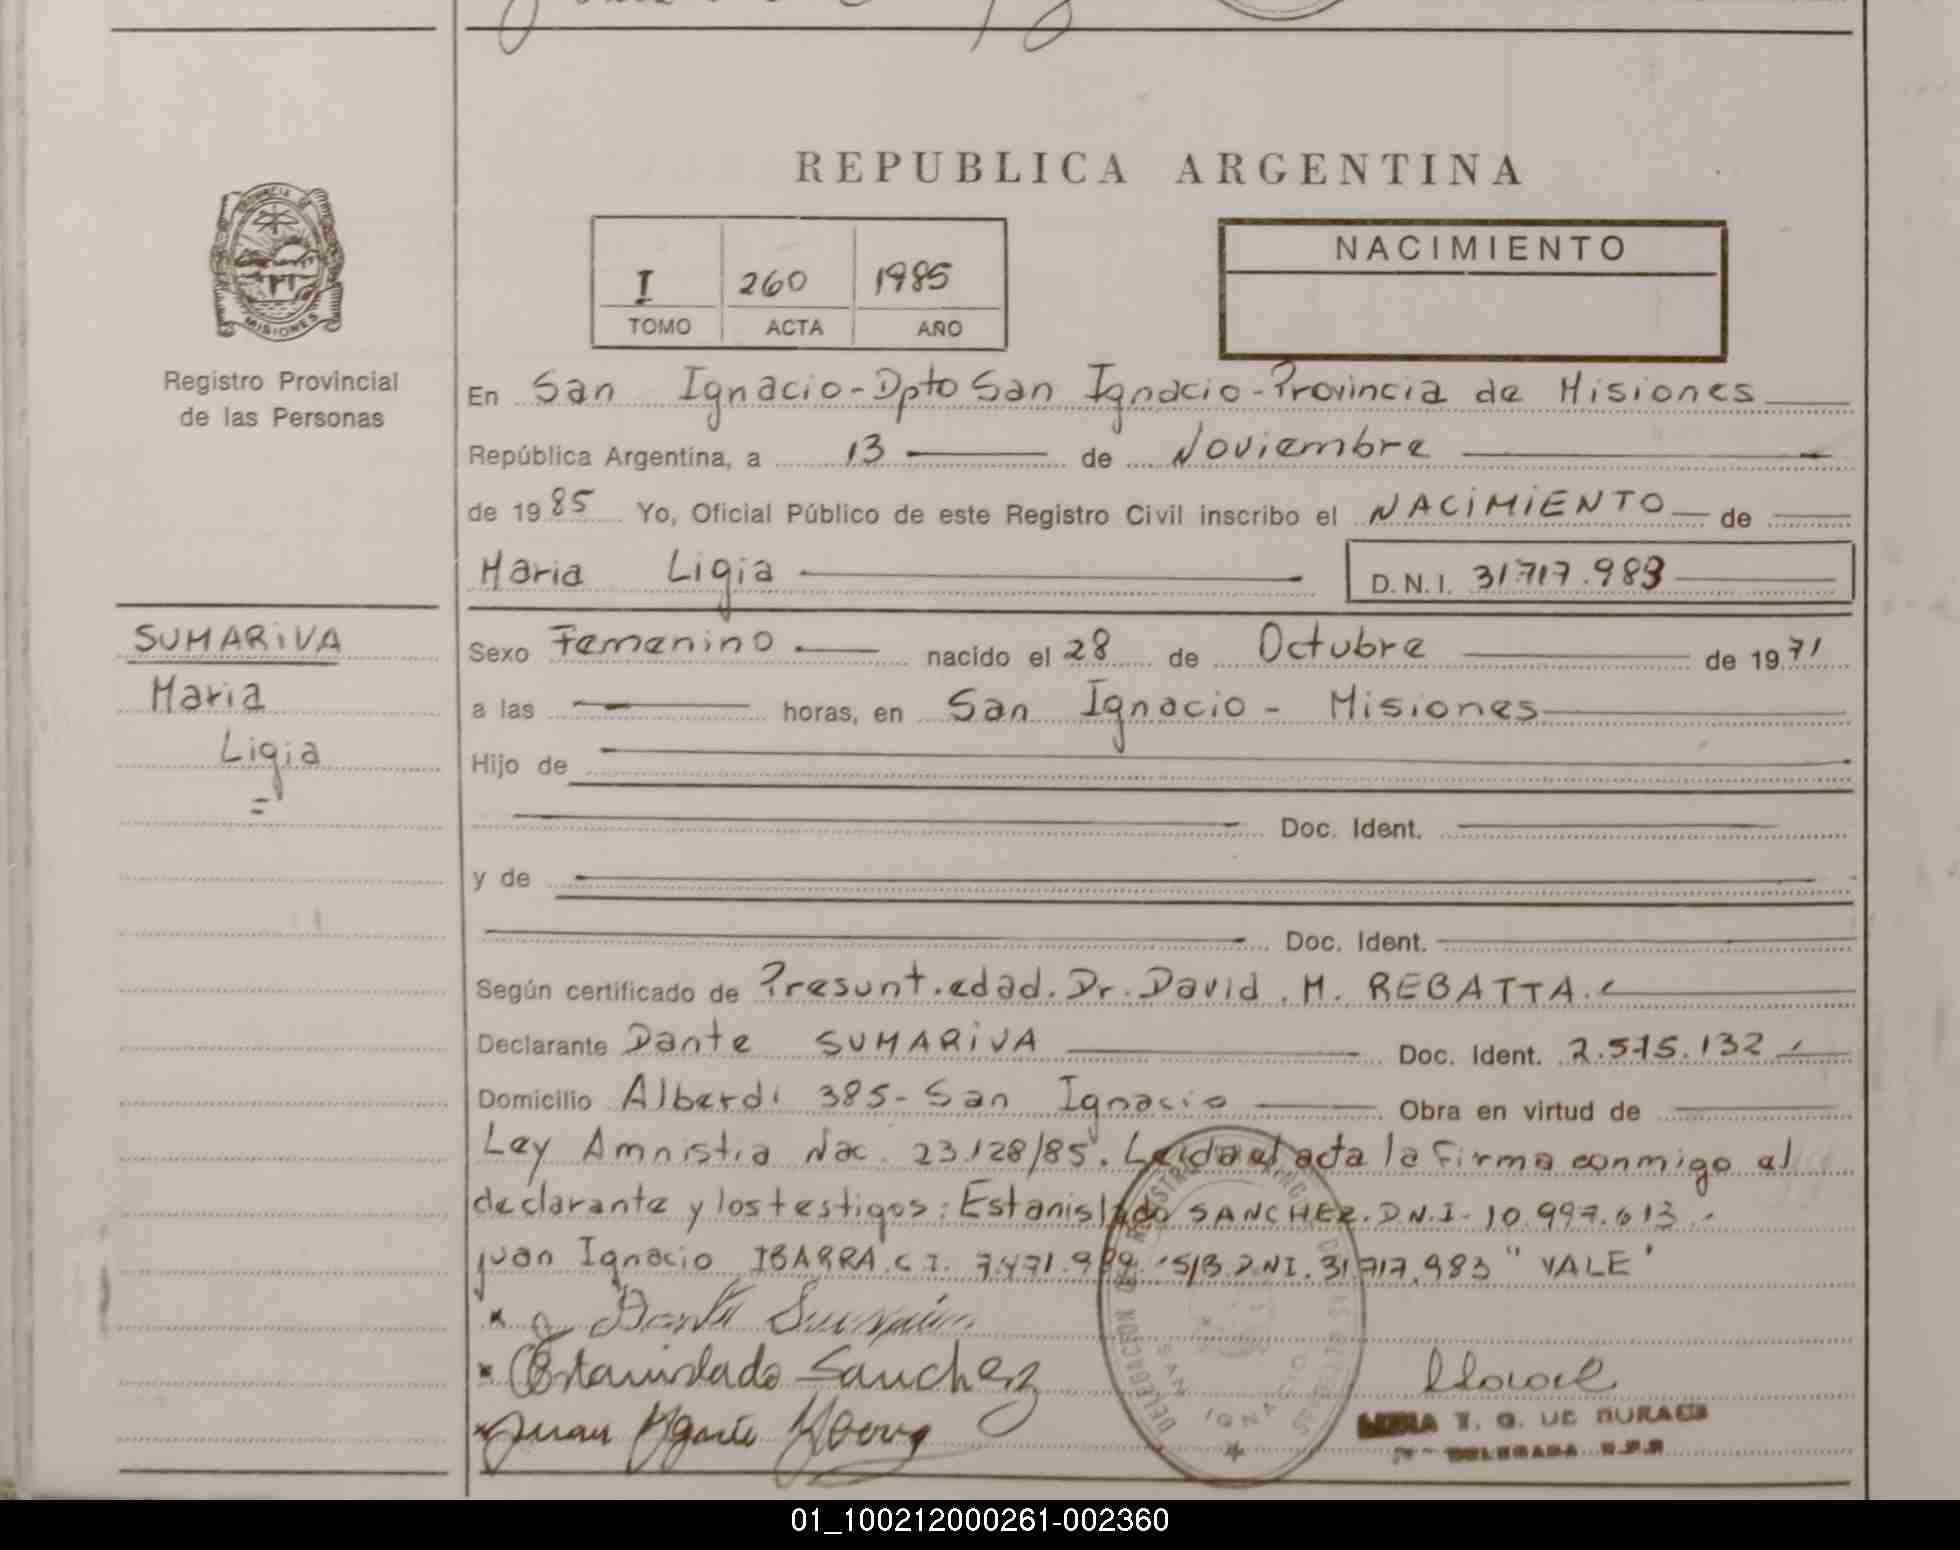 REPUBLICA ARGENTINA
PROVINCIA DE
MISIONES
Registro Provincial
de las Personas
I 260 1985
TOMO ACTA AÑO
NACIMIENTO
En San Ignacio-Dpto San Ignacio-Provincia de Misiones
República Argentina, a 13 de Noviembre
de 1985 Yo, Oficial Público de este Registro Civil inscribo el NACIMIENTO de
Maria Ligia D.N.I. 31.717.983
SUMARIVA
Maria
Ligia
=
Sexo Femenino nacido el 28 de Octubre de 1971
a las horas, en San Ignacio - Misiones
Hijo de
Doc. Ident.
y de
Doc. Ident.
Según certificado de Presunt.edad.Dr.David.M. REBATTA.
Declarante Dante SUMARIVA Doc. Ident. 2.515.132
Domicilio Alberdi 385-San Ignacio Obra en virtud de
Ley Amnistia Nac. 23.128/85. Leida el acta la firma conmigo el
declarante y los testigos: Estanislado SANCHEZ.DN.I-10.997.613.-
juan Ignacio IBARRA.C I. 7.471.999 S/B.DNI.31.717.983 "VALE"
Estanislado Sanchez
Juan
DELEGACION
SAN IGNACIO
T. G. DE DURAES
DELEGADA R.P.P.
01_100212000261-002360